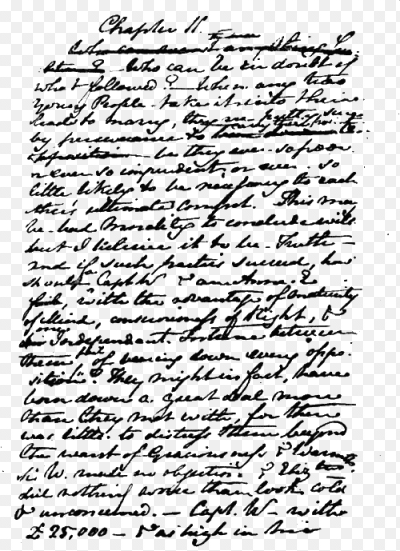 Chapter 11.
Who can be in doubt of
what followed? When any two
Young People take it into their
heads to marry, they are pretty sure
by perseverance to carry their point
be they ever so poor
or ever so imprudent, or ever so
little likely to be necessary to each
other's ultimate comfort. This may
be bad Morality to conclude with
but I believe it to be Truth
and if such parties succeed, how
should a Capt. W & an Anne E
fail, with the advantage of Maturity
of Mind, consciousness of Right, &
Independant Fortune between
them of bearing down every oppo-
sition? They might in fact, have
born down a great deal more
than they met with, for there
was little to distress them beyond
the want of Graciousness & Warmth
Sir W. made no objection. & Eliz:
did nothing worse than look cold
& unconcerned. - Capt. W - with
£25,000 - & as high in his